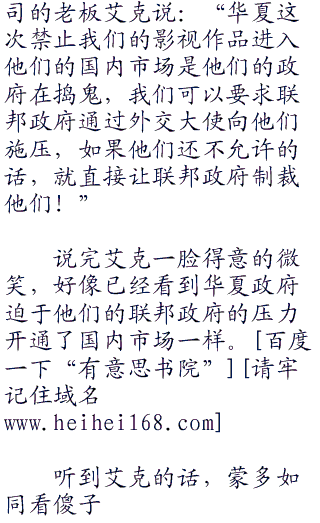 司的老板艾克说：“华夏这
次禁止我们的影视作品进入
他们的国内市场是他们的政
府在捣鬼，我们可以要求联
邦政府通过外交大使向他们
施压，如果他们还不允许的
话，就直接让联邦政府制裁
他们！”
说完艾克一脸得意的微
笑，好像已经看到华夏政府
迫于他们的联邦政府的压力
开通了国内市场一样。[百度
一下“有意思书院”][请牢
记住域名
www.heihei168.com]
听到艾克的话，蒙多如
同看傻子